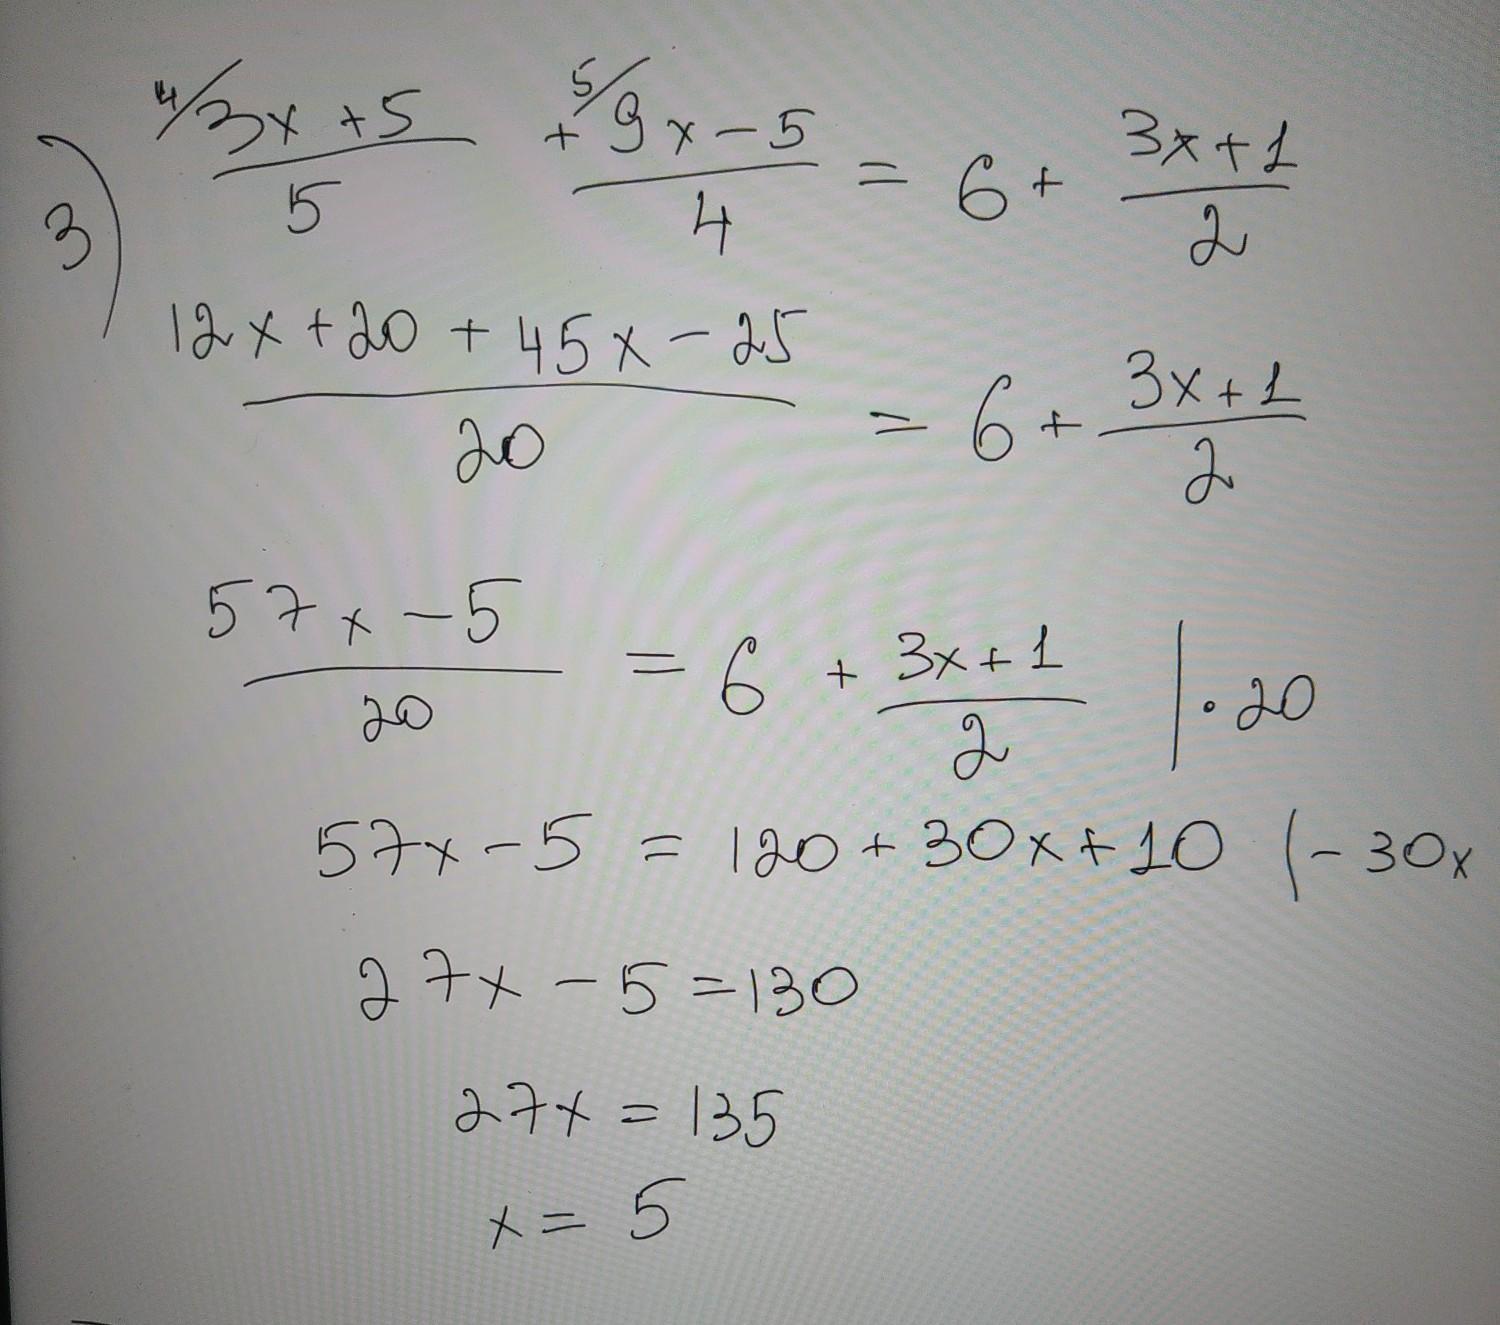 3) 4/ 3x+5/5 + 5/ 9x-5/4 = 6 + 3x+1/2
12x+20+45x-25/20 = 6 + 3x+1/2
57x-5/20 = 6 + 3x+1/2 |·20
57x-5 = 120+30x+10 |-30x
27x-5=130
27x=135
x=5